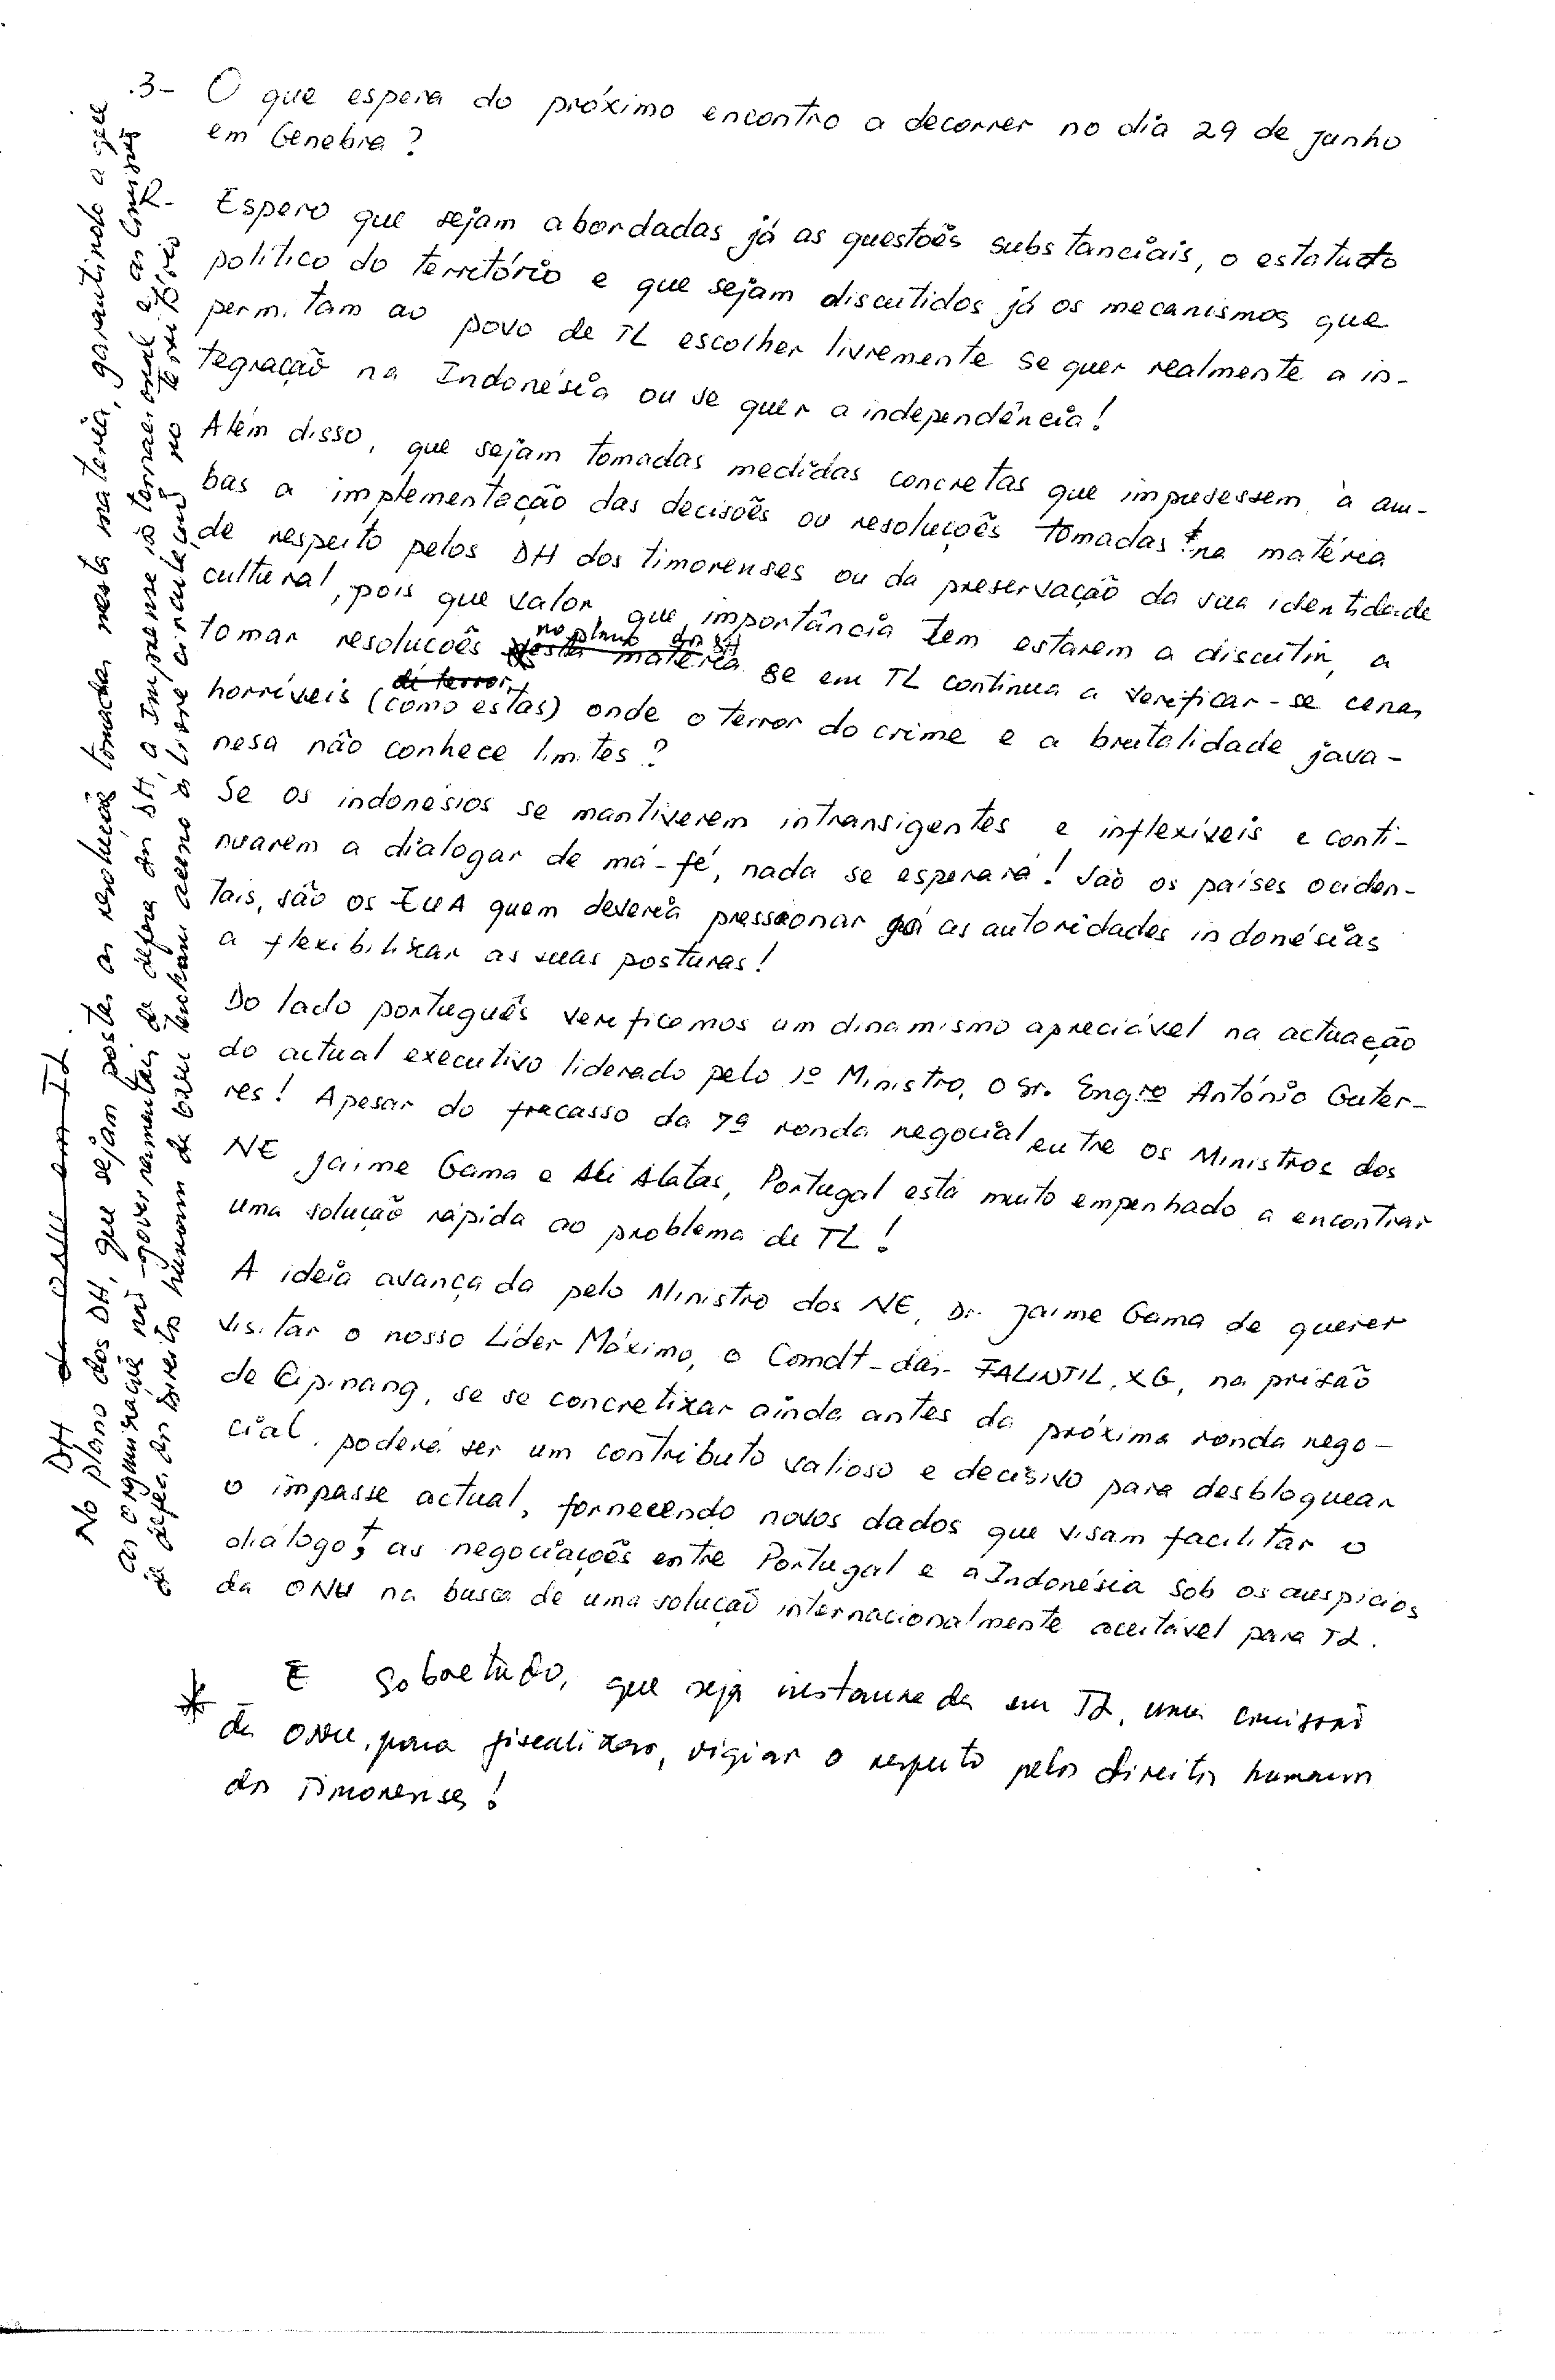 .3- O que espera do próximo encontro a decorrer no dia 29 de Junho
em Genebra?
R- Espero que sejam abordadas já as questões substanciais, o estatuto
político do território e que sejam discutidos já os mecanismos que
permitam ao povo de TL escolher livremente se quer realmente a in-
tegração na Indonésia ou se quer a independência!
Além disso, que sejam tomadas medidas concretas que impusessem à am-
bas a implementação das decisões ou resoluções tomadas na matéria
de respeito pelos DH dos timorenses ou da preservação da sua identidade
cultural, pois que valor, que importância tem estarem a discutir, a
no plano dos DH
tomar resoluções nesta matéria se em TL continua a verificar-se cenas
de terror
horríveis (como estas) onde o terror do crime e a brutalidade java-
nesa não conhece limites?
Se os indonésios se mantiverem intransigentes e inflexíveis e conti-
nuarem a dialogar de má-fé, nada se esperará! São os países ociden-
tais, são os EUA quem deveria pressionar as autoridades indonésias
a flexibilizar as suas posturas!
Do lado português verificamos um dinamismo apreciável na actuação
do actual executivo liderado pelo 1º Ministro, o Sr. Engro António Guter-
res! Apesar do fracasso da 7ª ronda negocial entre os Ministros dos
NE Jaime Gama e Ali Alatas, Portugal está muito empenhado a encontrar
uma solução rápida ao problema de TL!
A ideia avançada pelo Ministro dos NE, Dr. Jaime Gama de querer
visitar o nosso Líder Máximo, o Comdt-das-FALINTIL, XG, na prisão
de Cipinang, se se concretizar ainda antes da próxima ronda nego-
cial, poderá ser um contributo valioso e decisivo para desbloquear
o impasse actual, fornecendo novos dados que visam facilitar o
diálogo, as negociações entre Portugal e a Indonésia sob os auspícios
da ONU na busca de uma solução internacionalmente aceitável para TL.
* E sobretudo, que seja instaurada em TL, uma comissão
da ONU, para fiscalizar, vigiar o respeito pelos direitos humanos
dos Timorenses!
DH da ONU em TL.
No plano dos DH, que sejam postas as resoluções tomadas nesta matéria, garantindo a que
as organizações não-governamentais de defesa dos DH, a Imprensa internacional e as Comissões
de defesa dos Direitos humanos da ONU tenham acesso à livre circulação no território